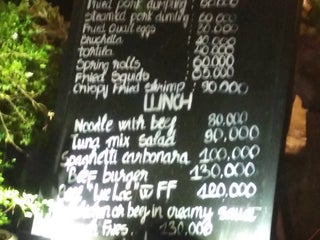 Fried pork dumpling : 60.000
Steamed pork dumling 60.000
Fried Quail eggs :
Bruchetta :
Tortilla :
Spring rolls : 60.000
Fried Squids : 65.000
Crispy Fried shrimp : 90.000
LUNCH
Noodle with beef 80.000
Tuna mix salad 90,000
Spaghetti carbonara 100,000
Beef burger 130,000
Beef "Luc Lac" w FF 120,000
or beef in creamy
Fries. 130.000